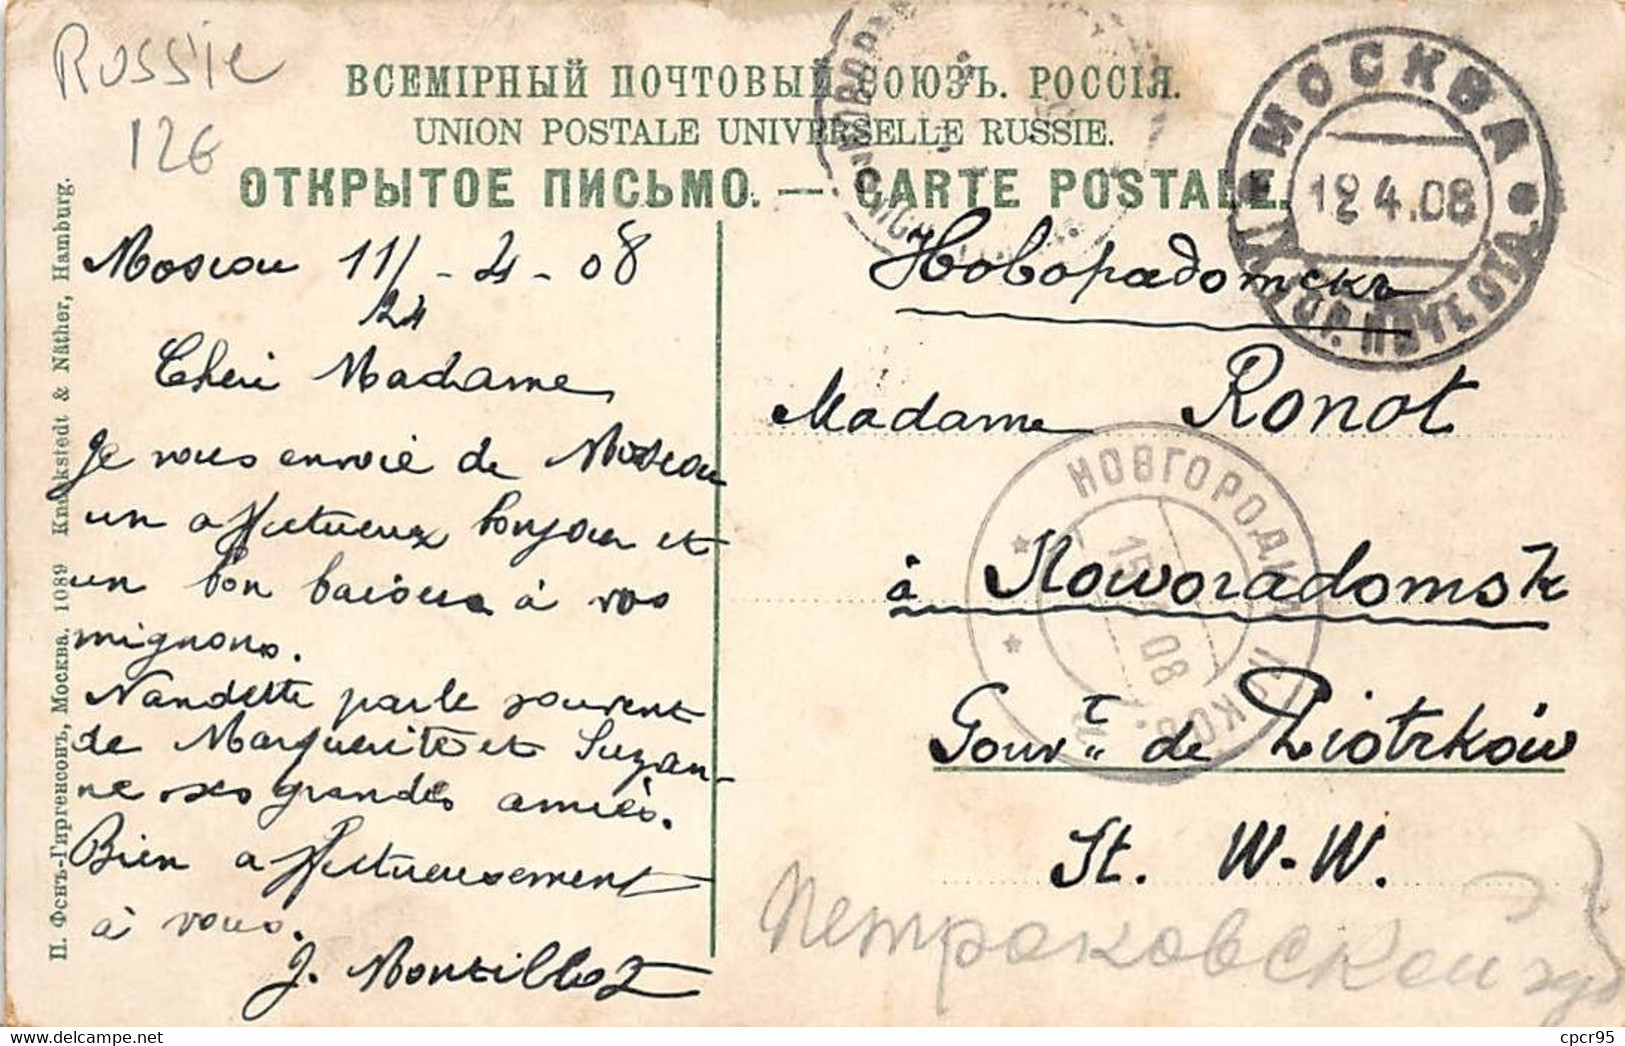 Russie
12€
ВСЕМІРНЫЙ ПОЧТОВЫЙ СОЮЗЪ. РОССІЯ.
UNION POSTALE UNIVERSELLE RUSSIE.
ОТКРЫТОЕ ПИСЬМО. — CARTE POSTALE.
МОСКВА
12 4.08
П. Фенъ-Гиргенсонъ, Москва. 1089 Knackstedt & Näther, Hamburg.
Moscou 11/24 - 4 - 08
Cheri Madame
Je vous envoie de Moscou
un affectueux bonjour et
un bon baiser à vos
mignons.
Nandette parle souvent
de Marguerite et Suzan-
ne ses grandes amies.
Bien affectueusement
à vous.
J. Montillot
Новорадомскъ
Madame Ronot
à Noworadomsk
Gour.t de Piotrków
St. W.-W.
НОВГОРОДКА ПСКОВ.
15 08
Петроковской губ
cpcr95